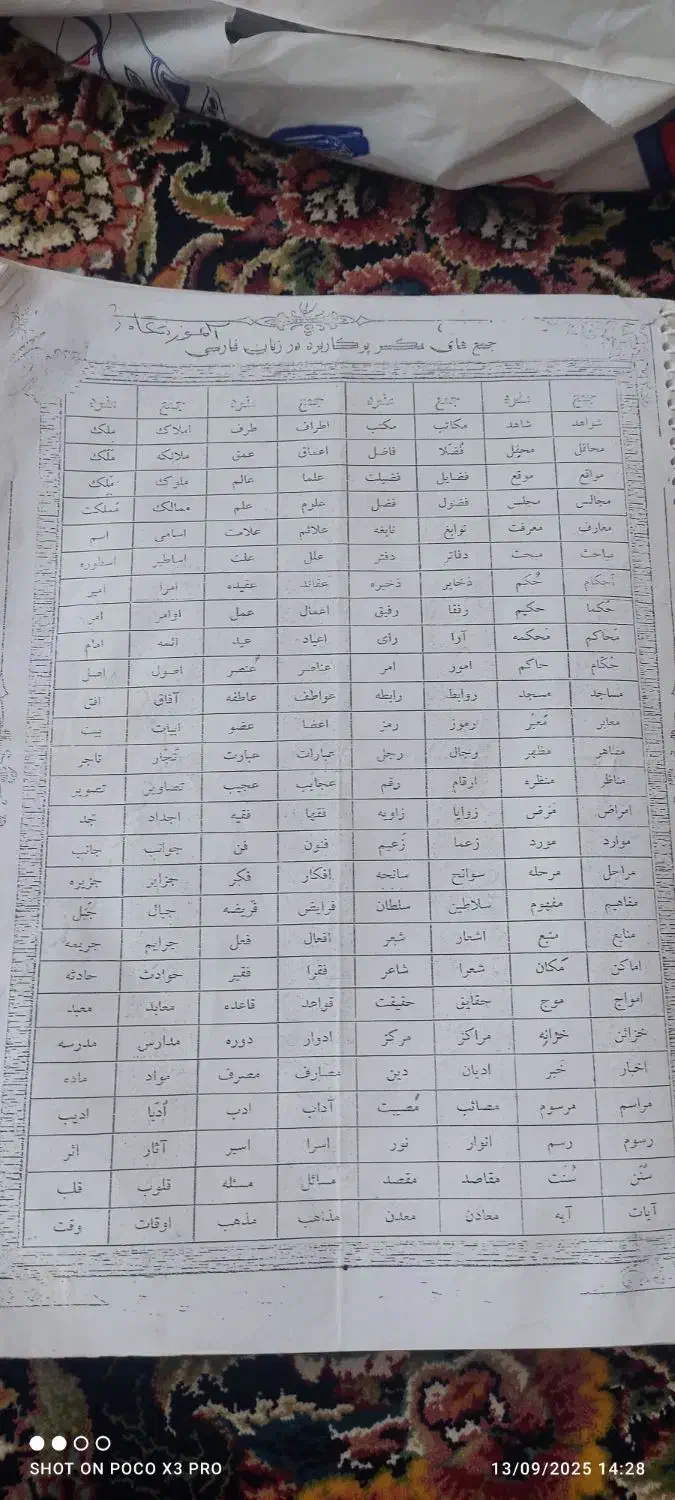 جمع های مکسر پرکاربرد در زبان فارسی
جمع مفرد جمع مفرد جمع مفرد جمع مفرد
شواهد شاهد مکاتب مکتب اطراف طرف املاک ملک
محافل محفل فُضَلا فاضل اعماق عمق ملائکه مَلَک
مواقع موقع فضایل فضیلت علما عالم ملوک مَلِک
مجالس مجلس فضول فضل علوم علم ممالک مَملکت
معارف معرفت نوابغ نابغه علائم علامت اسامی اسم
مباحث مبحث دفاتر دفتر علل علت اساطیر اسطوره
احکام حُکم ذخایر ذخیره عقائد عقیده امرا امیر
حُکما حکیم رفقا رفیق اعمال عمل اوامر امر
مَحاکم مَحکمه آرا رای اعیاد عید ائمه امام
حُکّام حاکم امور امر عناصر عُنصر اصول اصل
مساجد مسجد روابط رابطه عواطف عاطفه آفاق افق
معابر مَعبَر رموز رمز اعضا عضو ابیات بیت
مظاهر مظهر رجال رجل عبارات عبارت تُجّار تاجر
مناظر منظره ارقام رقم عجایب عجیب تصاویر تصویر
امراض مَرَض زوایا زاویه فقها فقیه اجداد جد
موارد مورد زعما زَعیم فنون فن جوانب جانب
مراحل مرحله سوانح سانحه افکار فکر جزایر جزیره
مفاهیم مفهوم سلاطین سلطان فرایض فریضه جبال جَبَل
منابع منبع اشعار شعر افعال فعل جرایم جریمه
اماکن مَکان شعرا شاعر فقرا فقیر حوادث حادثه
امواج موج حقایق حقیقت قواعد قاعده معابد معبد
خزائن خزانه مراکز مرکز ادوار دوره مدارس مدرسه
اخبار خَبر ادیان دین مصارف مصرف مواد ماده
مراسم مرسوم مصائب مُصیبت آداب ادب اُدَبا ادیب
رسوم رسم انوار نور اسرا اسیر آثار اثر
سُنَن سُنَت مقاصد مقصد مسائل مسئله قلوب قلب
آیات آیه معادن معدن مذاهب مذهب اوقات وقت
SHOT ON POCO X3 PRO 13/09/2025 14:28